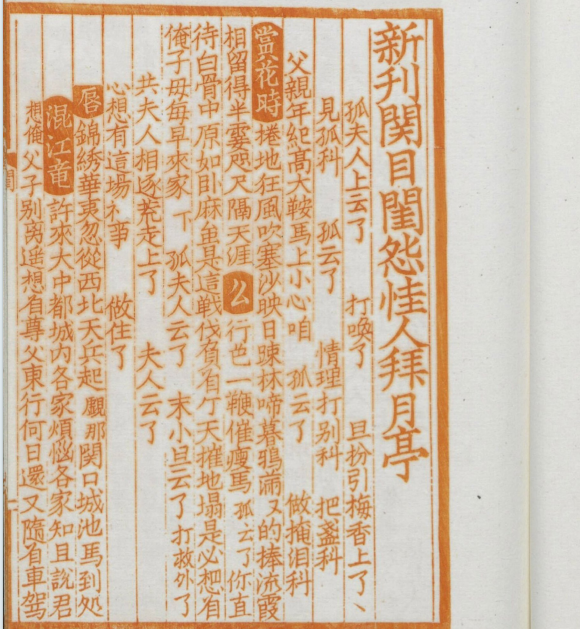 新刋関目閨怨佳人拜月亭
孤夫人上云了 打喚了 旦扮引梅香上了、
見孤科 孤云了 情理打别科 把盞科
父親年紀髙大鞍馬上小心咱 孤云了 做掩泪科
賞花時 捲地狂風吹塞沙映日踈林啼暮鴉滿又的捧流霞
相留得半霎咫尺隔天涯 么 行色一鞭催瘦馬 孤云了 你直
待白骨中原如卧麻 這戦伐負 天摧地塌是必想有
俺子母每早來家 下 孤夫人云了 末小旦云了 打救外了
共夫人相逐荒走上了 夫人云了
心想有這場禾事 做住了
唇 錦綉華夷忽從西北天兵起 覷那関口城池馬到処
混江竜 許來大中都城内各家煩惱各家知且說君
想俺父子别离遥想有尊父東行何日還又隨有車駕